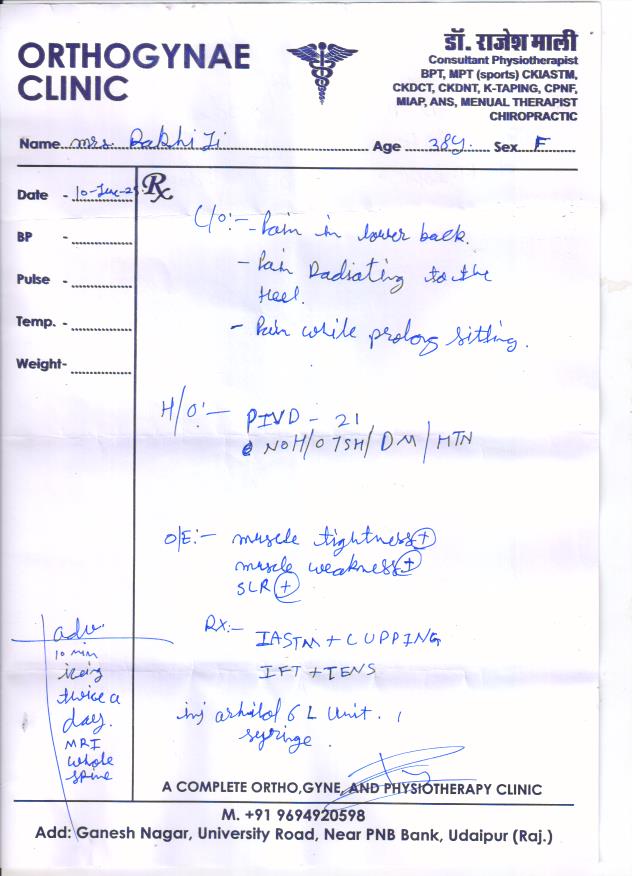 ORTHOGYNAE
CLINIC
डॉ. राजेश माली
Consultant Physiotherapist
BPT, MPT (sports) CKIASTM,
CKDCT, CKDNT, K-TAPING, CPNF,
MIAP, ANS, MENUAL THERAPIST
CHIROPRACTIC
Name Mrs. Rakhi Ji Age 38y. Sex F
Date - 10-
BP -
Pulse -
Temp. -
Weight-
Rx
C/O:- - Pain in lower back.
- Pain Radiating to the
Heel.
- Pain while prolong sitting.
H/O:- PIVD - 21
NO H/O TSH/DM/HTN
O/E:- muscle tightness +
muscle weakness +
SLR +
Rx:- IASTM + CUPPING
IFT + TENS
inj 6 L Unit. 1
syringe.
adv.
10 min
icing
twice a
day.
MRI
whole
spine
A COMPLETE ORTHO,GYNE, AND PHYSIOTHERAPY CLINIC
M. +91 9694920598
Add: Ganesh Nagar, University Road, Near PNB Bank, Udaipur (Raj.)